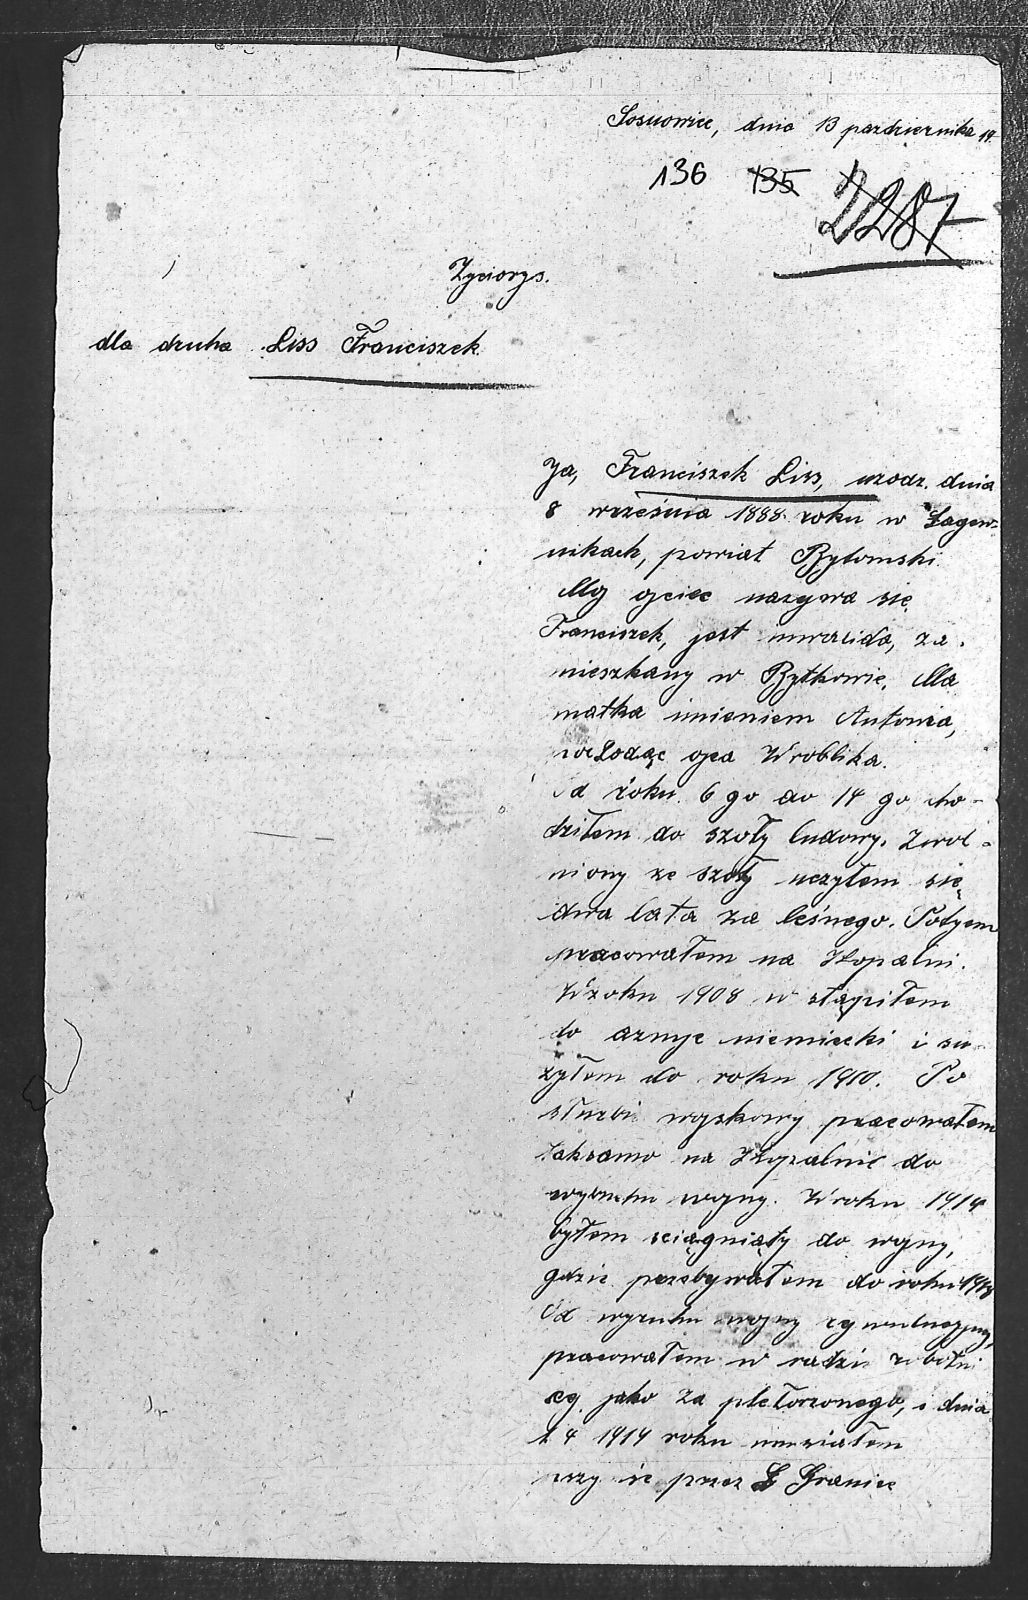 Sosnowiec, dnia 13 pazdziernika 19
136 135 2287
Zyciorys.
dla druha Liss Franciszek
Ja, Franciszek Liss, urodz. dnia
8 września 1888 roku w Łagiew=
nikach, powiat Bytomski.
Mój ojciec nazywa się
Franciszek, jest inwalida, za.
mieszkany w Bytkowie. Ma
matka imieniem Antonia,
ojca Wroblika.
Od roku 6 go do 14 go cho-
dziłem do szoły ludowy. Zwol-
niony ze szoły uczyłem się
dwa lata za leśnego. Potyem
pracowałem na Kopalni.
W roku 1908 w stąpiłem
do armje niemiecki i su-
zyłem do roku 1910. Po
służbi wojskowy pracowałem
taksamo na Kopalnie do
wybuchu wojny. W roku 1914
byłem sciągniąty do wojny,
gdzie przebywałem do roku 1918
Od wyruhu wojny
pracowałem w radzie robotni
cy jako za , i dnia
1 4 1919 roku musiałem
przez Granice